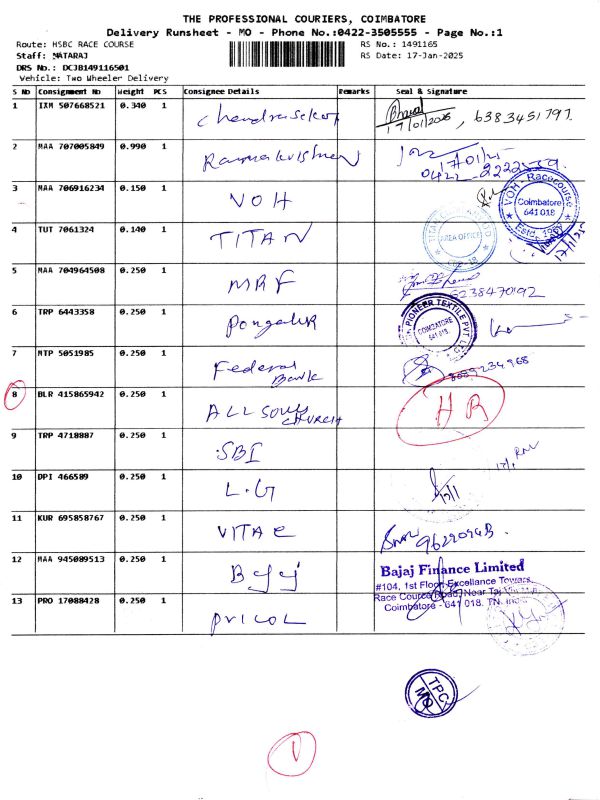 THE PROFESSIONAL COURIERS, COIMBATORE
Delivery Runsheet - MO - Phone No.:0422-3505555 - Page No.:1
Route: HSBC RACE COURSE RS No.: 1491165
Staff: NATARAJ RS Date: 17-Jan-2025
DRS No.: DCJB149116501
Vehicle: Two Wheeler Delivery
S No Consignment No Weight PCS Consignee Details Remarks Seal & Signature
1 IXM 507668521 0.340 1 Chandrasekar 17/01/2025, 6383451797
2 MAA 707005849 0.990 1 Ramakrishnan 17/01/25
0422-2222559.
3 MAA 706916234 0.150 1 VOH VOH - Racecourse Coimbatore 641 018 Estd. 1967
17/1/25
4 TUT 7061324 0.140 1 TITAN AREA OFFICE
5 MAA 704964508 0.250 1 MRF 6238470192
6 TRP 6443358 0.250 1 Pongalur PIONEER TEXTILE PVT LTD COIMBATORE 641 018.
7 MTP 5051985 0.250 1 Federal Bank 8089234968
8 BLR 415865942 0.250 1 ALL SOULS CHURCH HR
9 TRP 4718887 0.250 1 SBI
10 DPI 466589 0.250 1 L.G
11 KUR 695858767 0.250 1 VITAE
12 MAA 945089513 0.250 1 Bajaj Finance Limited
#104, 1st Floor Excellance Towers,
Race Course Road, Near Taj
Coimbatore - 641 018. TN. India
13 PRO 17088428 0.250 1 PRICOL
TPC
MO
1